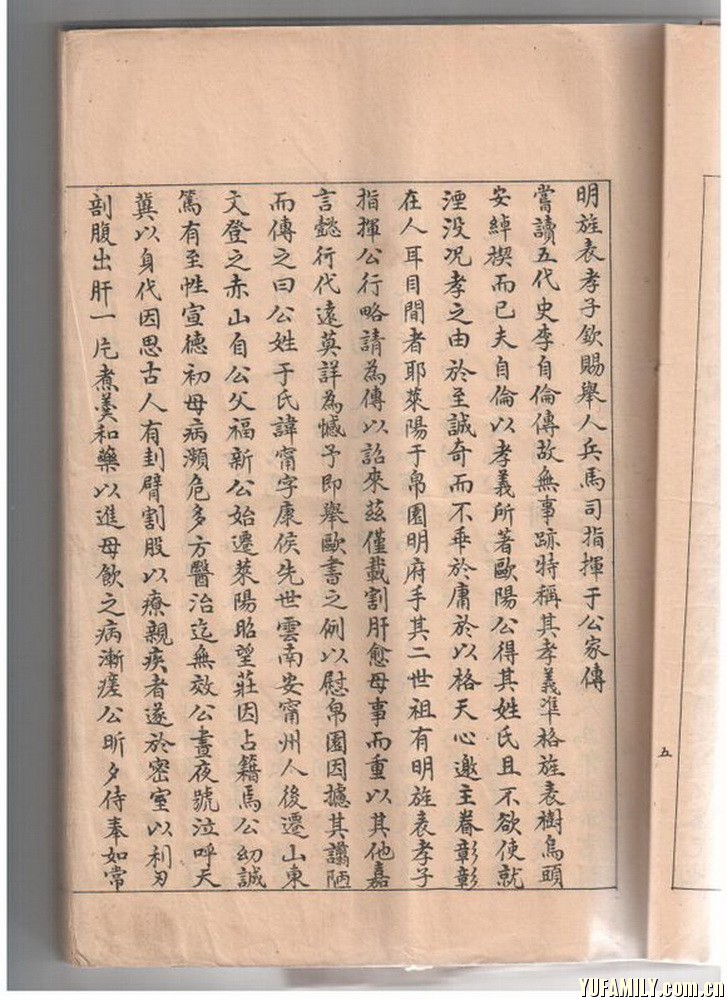 明旌表孝子欽賜舉人兵馬司指揮于公家傳
嘗讀五代史李自倫傳故無事跡特稱其孝義準格旌表樹烏頭
安綽楔而已夫自倫以孝義所著歐陽公得其姓氏且不欲使就
湮没况孝之由於至誠奇而不乖於庸於以格天心邀主眷彰彰
在人耳目間者耶萊陽于帛園明府手其二世祖有明旌表孝子
指揮公行略請為傳以詔來兹僅載割肝愈母事而重以其他嘉
言懿行代遠莫詳為憾予即舉歐書之例以慰帛園因據其譾陋
而傳之曰公姓于氏諱甯字康侯先世雲南安甯州人後遷山東
文登之赤山自公父福新公始遷萊陽昭望莊因占籍焉公幼誠
篤有至性宣德初母病瀕危多方醫治迄無效公晝夜號泣呼天
冀以身代因思古人有刲臂割股以療親疾者遂於密室以利刃
剖腹出肝一片煮羹和藥以進母飲之病漸瘥公昕夕侍奉如常
五
YUFAMILY.com.cn